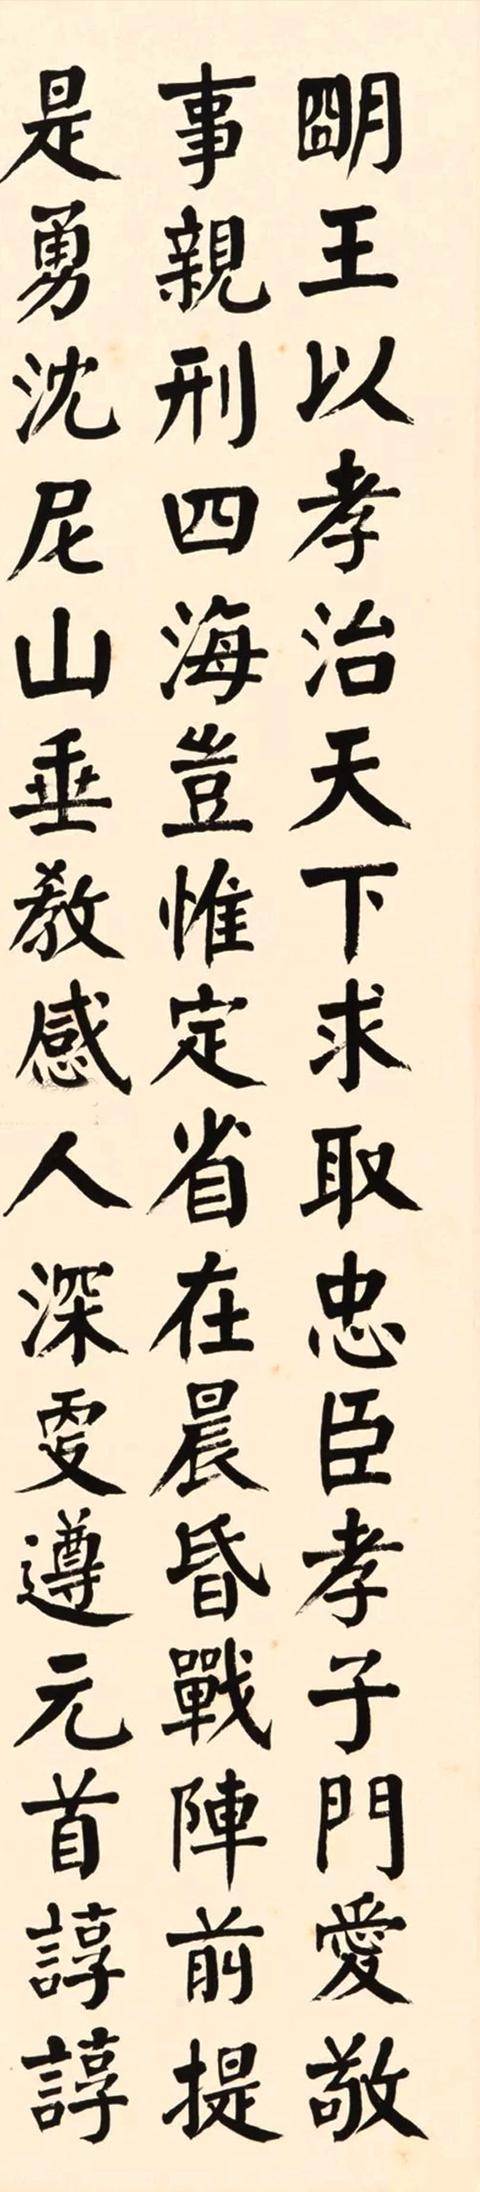 朙王以孝治天下求取忠臣孝子門愛敬
事親刑四海豈惟定省在晨昏戰陣前提
是勇沈尼山垂教感人深㪅遵元首諄諄